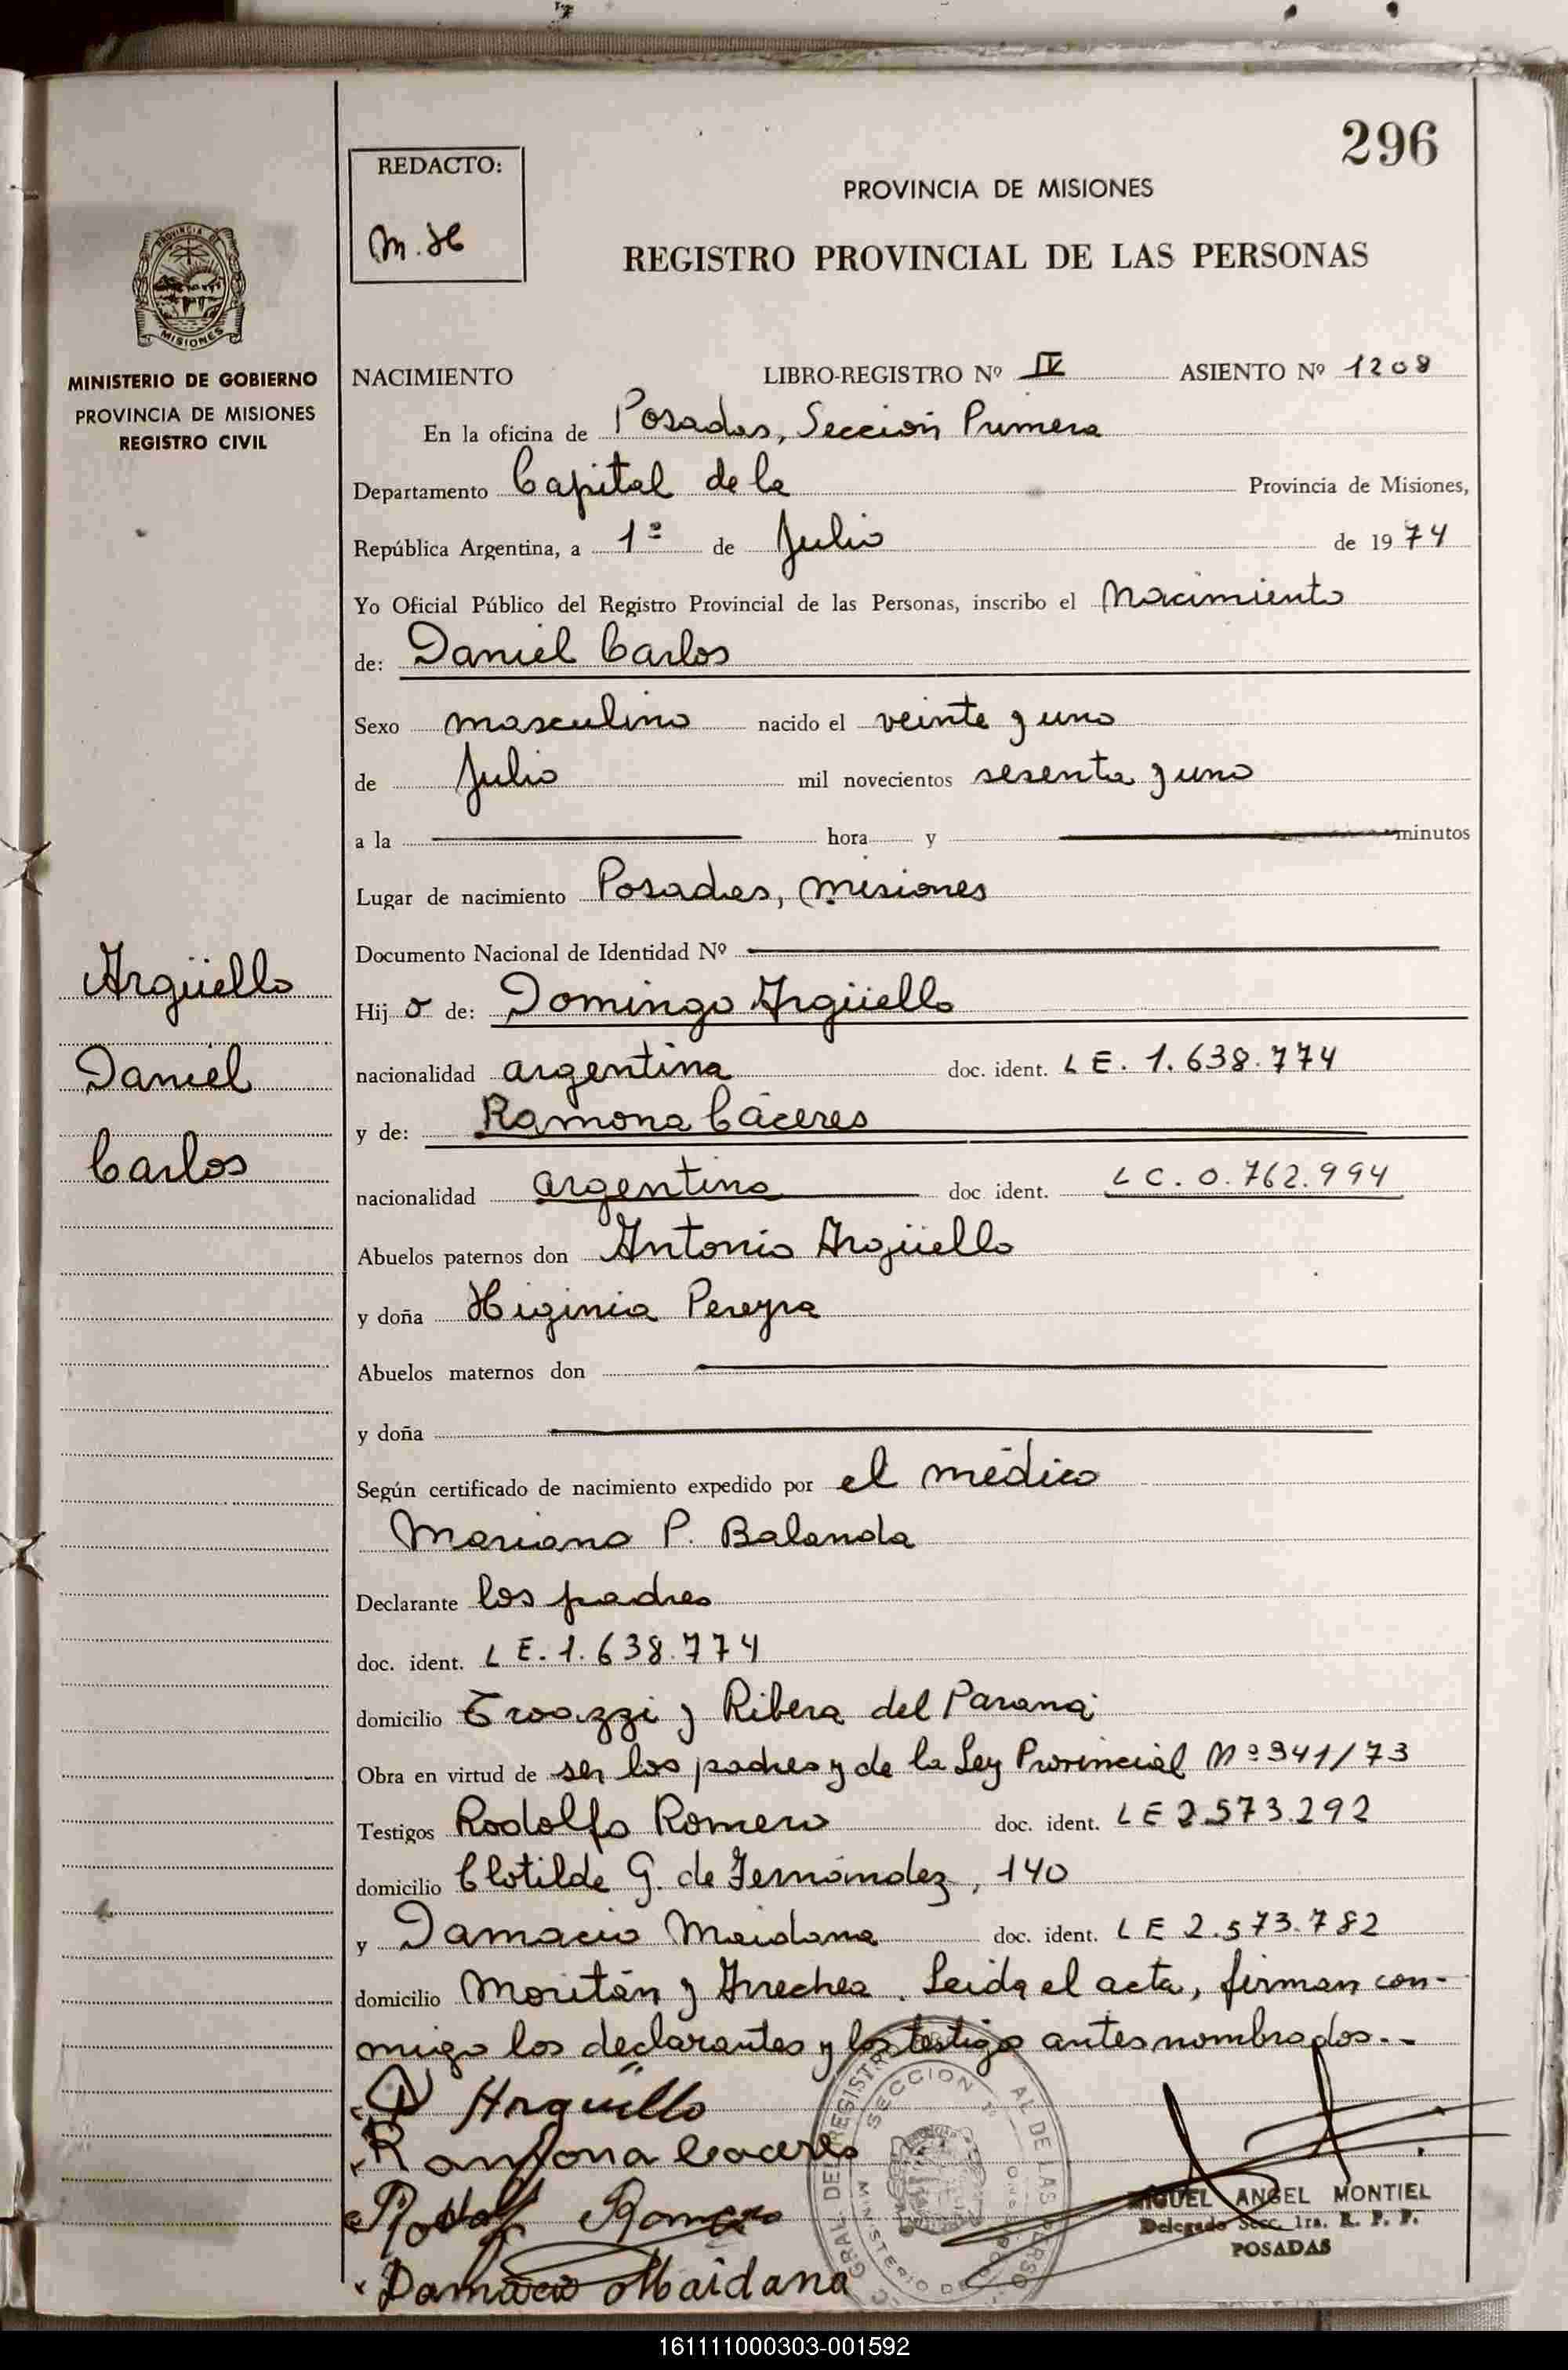 296
REDACTO:
M. H
PROVINCIA DE MISIONES
REGISTRO PROVINCIAL DE LAS PERSONAS
PROVINCIA DE
MISIONES
MINISTERIO DE GOBIERNO
PROVINCIA DE MISIONES
REGISTRO CIVIL
NACIMIENTO LIBRO-REGISTRO Nº IV ASIENTO Nº 1208
En la oficina de Posadas, Sección Primera
Departamento Capital de la Provincia de Misiones,
República Argentina, a 1º de Julio de 1974
Yo Oficial Público del Registro Provincial de las Personas, inscribo el Nacimiento
de: Daniel Carlos
Sexo masculino nacido el veinte y uno
de Julio mil novecientos sesenta y uno
a la hora y minutos
Lugar de nacimiento Posadas, Misiones
Documento Nacional de Identidad Nº
Argüello
Daniel
Carlos
Hijo de: Domingo Argüello
nacionalidad argentina doc. ident. LE. 1.638.774
y de: Ramona Cáceres
nacionalidad argentina doc ident. LC. 0.762.994
Abuelos paternos don Antonio Argüello
y doña Higinia Pereyra
Abuelos maternos don
y doña
Según certificado de nacimiento expedido por el médico
Mariano P. Balanda
Declarante los padres
doc. ident. LE. 1.638.774
domicilio y Ribera del Paraná
Obra en virtud de ser los padres y de la Ley Provincial Nº 941/73
Testigos Rodolfo Romero doc. ident. LE 2.573.292
domicilio Clotilde G. de Fernández, 140
y Damacio Maidana doc. ident. LE 2.573.782
domicilio Moritán y Arrechea. Leída el acta, firman con-
migo los declarantes y los testigo antes nombrados.-
D Arguello
Ramona Caceres
Rodolf Romero
Damacio Maidana
SECCION 1º
MIGUEL ANGEL MONTIEL
Delegado Secc 1ra. R. P. P.
POSADAS
161111000303-001592